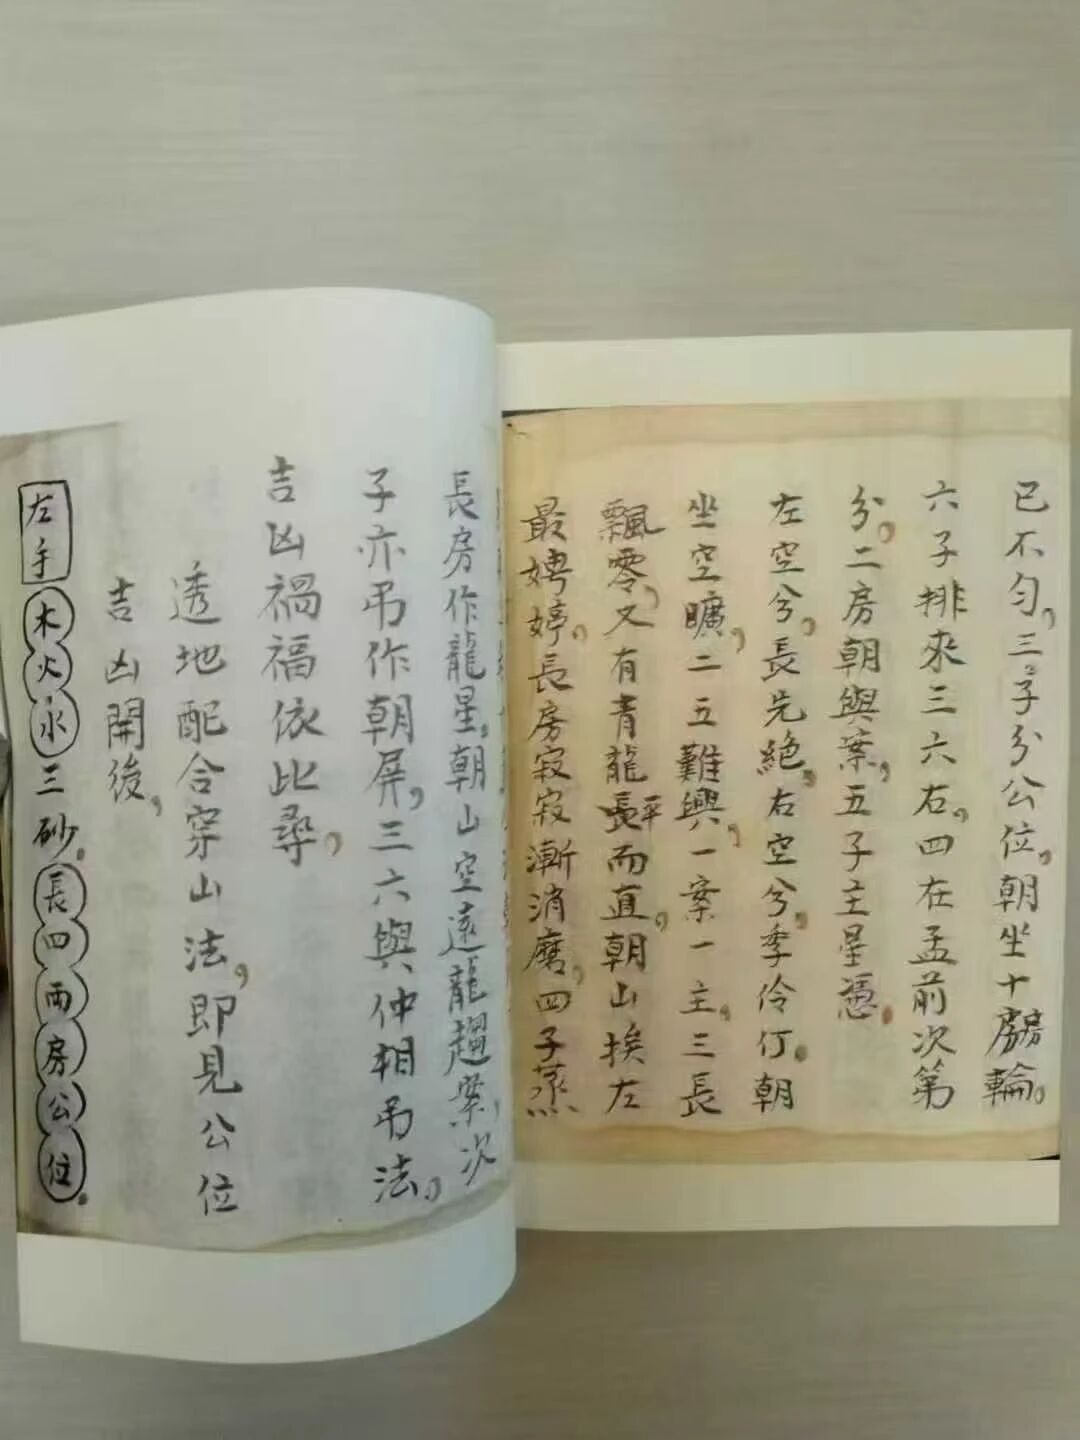 已不勻，三子分公位，朝坐十房輪。
六子排來三六右，四在孟前次第
分。二房朝與案，五子主星憑。
左空兮，長先絕，右空兮，季伶仃。朝
坐空曠，二五難興，一案一主，三長
飄零，又有青龍長平而直，朝山挨左
最娉婷。長房寂寂漸消磨，四子蒸
長房作龍星。朝山空遠龍趨案，次
子亦吊作朝屏，三六與仲相吊法，
吉凶禍福依此尋。
透地配合穿山法，即見公位
吉凶開後，
左手木火水三砂。長四兩房公位。